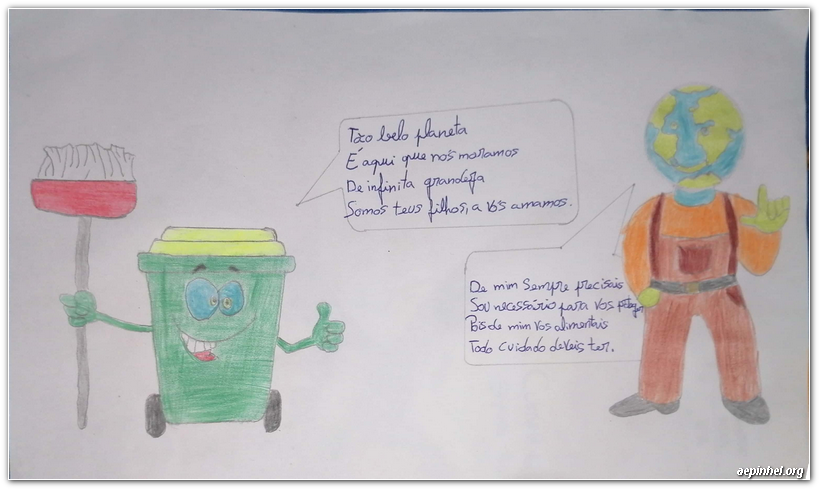 Tão belo planeta
É aqui que nós moramos
De infinita grandeza
Somos teus filhos, a vós amamos.
De mim sempre precisais
Sou necessário para vos proteger
Pois de mim vos alimentais
Todo cuidado deveis ter.
aepinhel.org